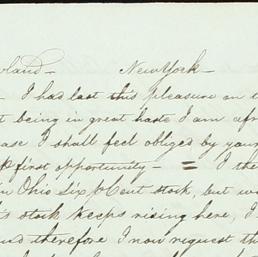 land - New York -
- I has last this pleasure on t
t being in great haste I am afr
ase I shall feel obliged by your
first opportunity - = I the
n Ohio six p Cent stock, but wo
stock keeps rising here, I
and therefore I now request th